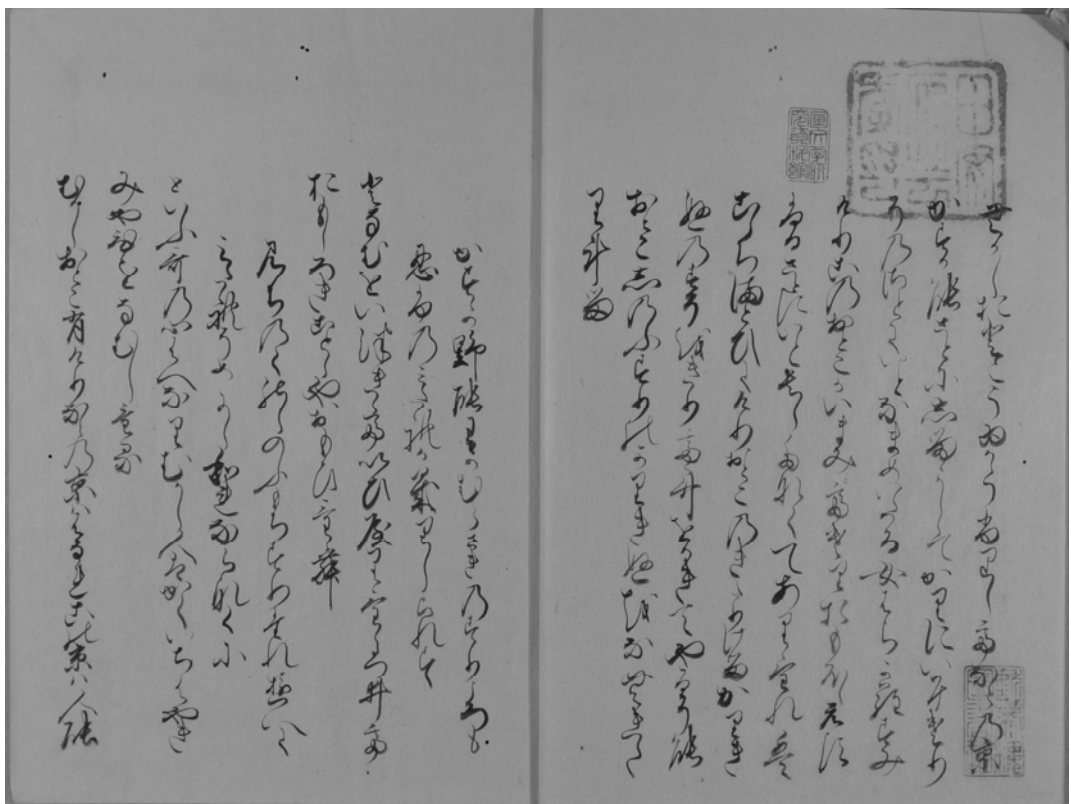 むかしおとこうゐかうふりしてならの京
かすかのさとにしるよしゝてかりにいにけり
そのさとにいとなまめいたる女はらからすみ
けりこのおとこかいまみてけりおもほえす
ふるさとにいとはしたなくてありけれは
こゝちまとひにけりおとこのきたりけるかりき
ぬのすそをきりてうたをかきてやるその
おとこしのふすりのかりきぬをなむきた
りける
かすか野のわかむらさきのすり衣
忍ふのみたれかきりしられす
となむをいつきていひやりけるついて
おもしろきことゝやおもひけむ
みちのくのしのふもちすりたれゆへに
みたれそめにし我ならなくに
といふ哥の心はへなりむかし人はかくいちはやき
みやひをなむしける
むかしおとこ有けりならの京ははなれこの京は人の